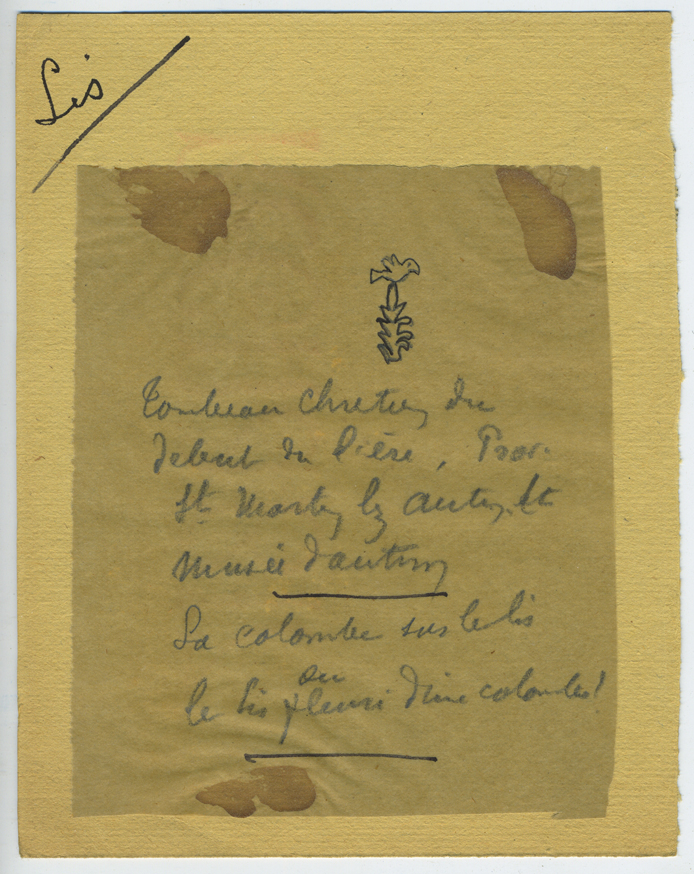 Lis
Tombeau chretien du
debut de l'ère, Prov.
St Martin lez autun. et
musée d'autun
La colombe sur le lis
ou
le lis fleuri d'une colombe!